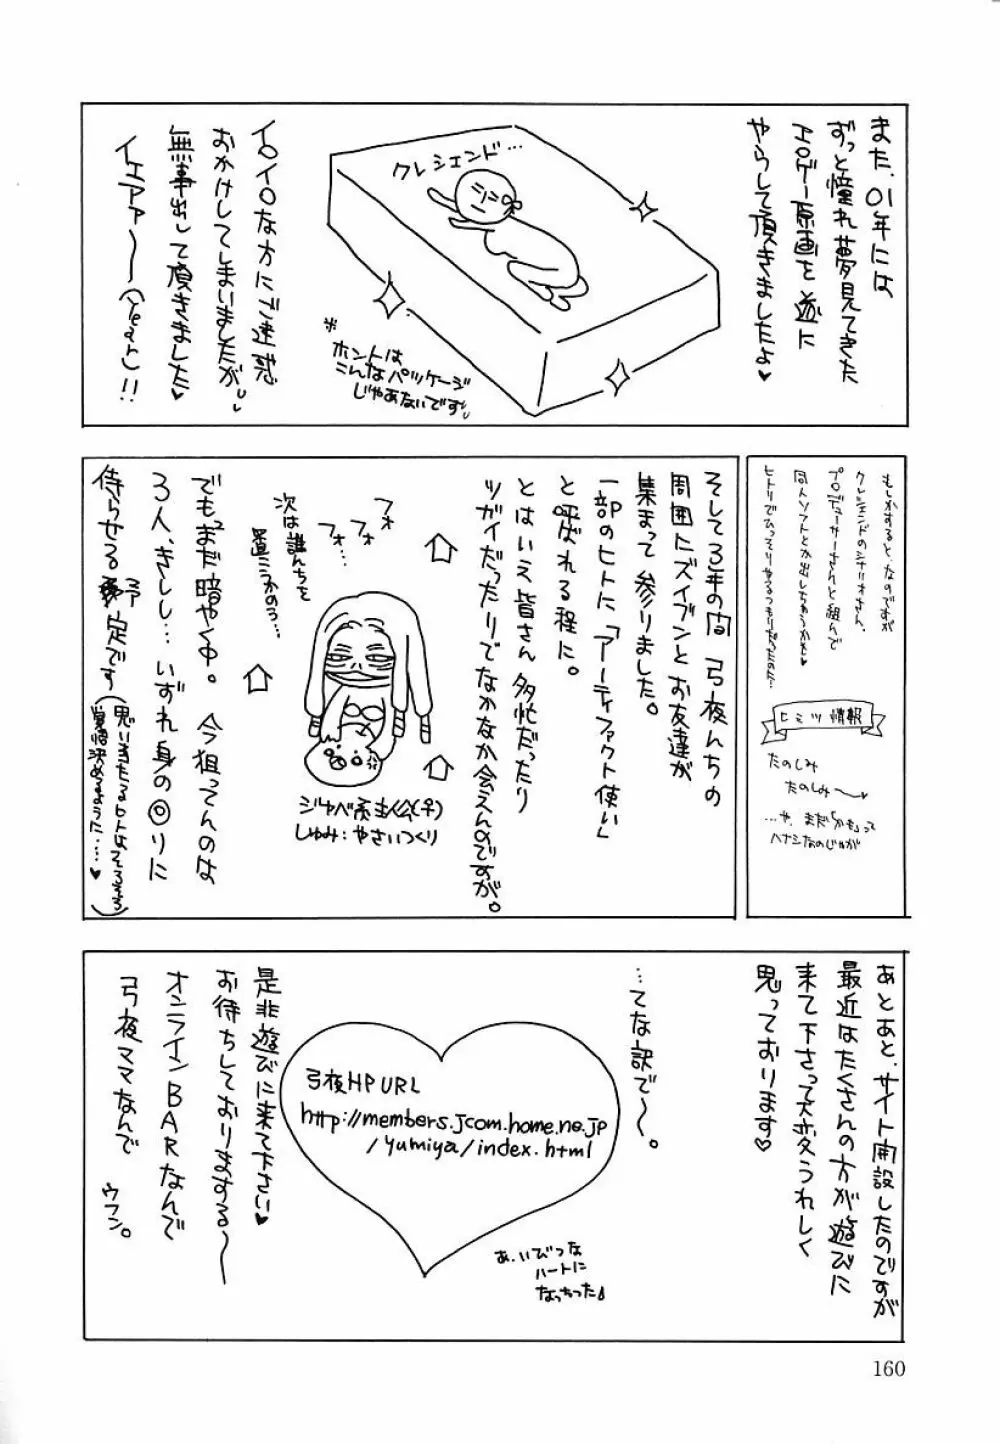 また、01年には
ずっと憧れ夢見てきた
エロゲー原画を遂に
やらして頂きましたよ♥
クレシェンド…
※
ホントは
こんなパッケージ
じゃあないです
イロイロな方にご迷惑
おかけしてしまいましたが、
無事出して頂きました♥
イェアァ〜〜(Yeah)!!
もしかすると、なのですが
クレシェンドのシナリオさん、
プロデューサーさんと組んで
同人ソフトとか出しちゃうかも♥
ヒトリでひっそりやるつもりだったのだ…
ヒミツ情報
たのしみ
たのしみ〜♥
…や、まだ「かも」って
ハナシなのじゃが
そして3年の間 弓夜んちの
周囲にズイブンとお友達が
集まって参りました。
一部のヒトに「アーティファクト使い」
と呼ばれる程に。
とはいえ皆さん多忙だったり
ツガイだったりでなかなか会えんのですが。
フォ
フォ
フォ…
次は誰んちを
置こうかのう…
ジャベ系主人公(♀)
しゅみ:やさいつくり
でもまだ暗やく中。今狙ってんのは
3人、きしし…いずれ身の◎りに
侍らせる予定です
(思い当たるヒトはそろそろ
覚悟決めるように…♥)
あとあと、サイト開設したのですが
最近はたくさんの方が遊びに
来て下さって大変うれしく
思っております♡
…てな訳で〜。
弓夜HP URL
http://members.jcom.home.ne.jp
/yumiya/index.html
あ、いびつな
ハートに
なっちった♪
是非遊びに来て下さい♥
お待ちしておりまする〜
オンラインBARなんで
弓夜ママなんで
ウフン。
160